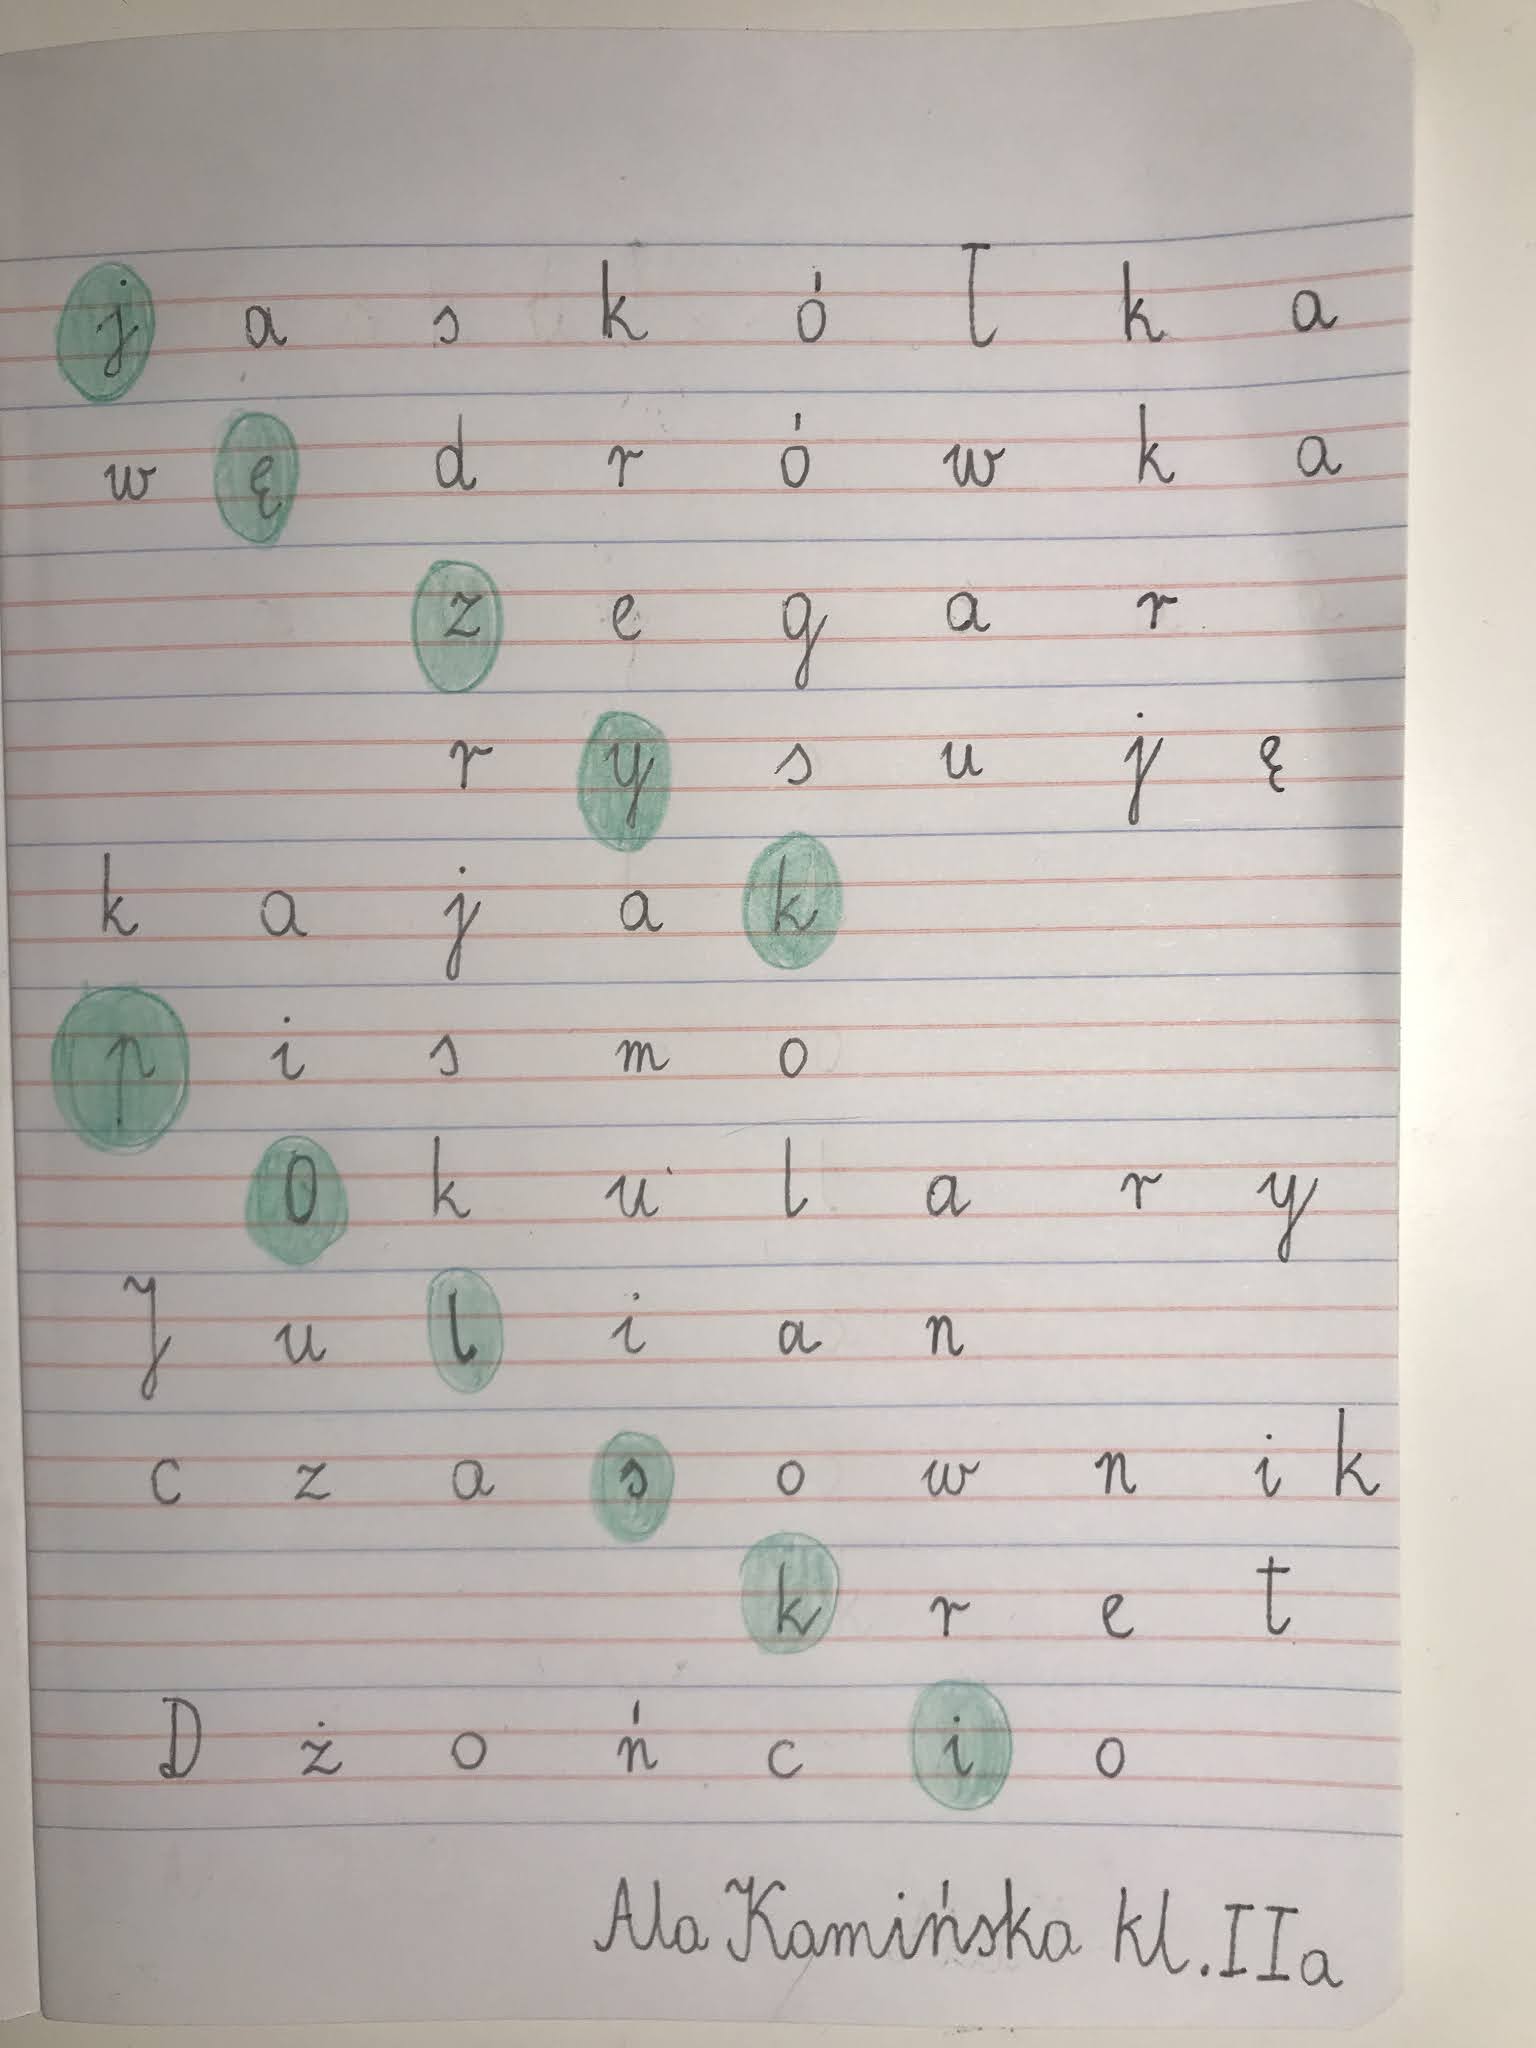 j a s k ó ł k a
w ę d r ó w k a
z e g a r
r y s u j ę
k a j a k
p i s m o
O k u l a r y
J u l i a n
c z a s o w n i k
k r e t
D ż o ń c i o
Ala Kamińska kl. IIa